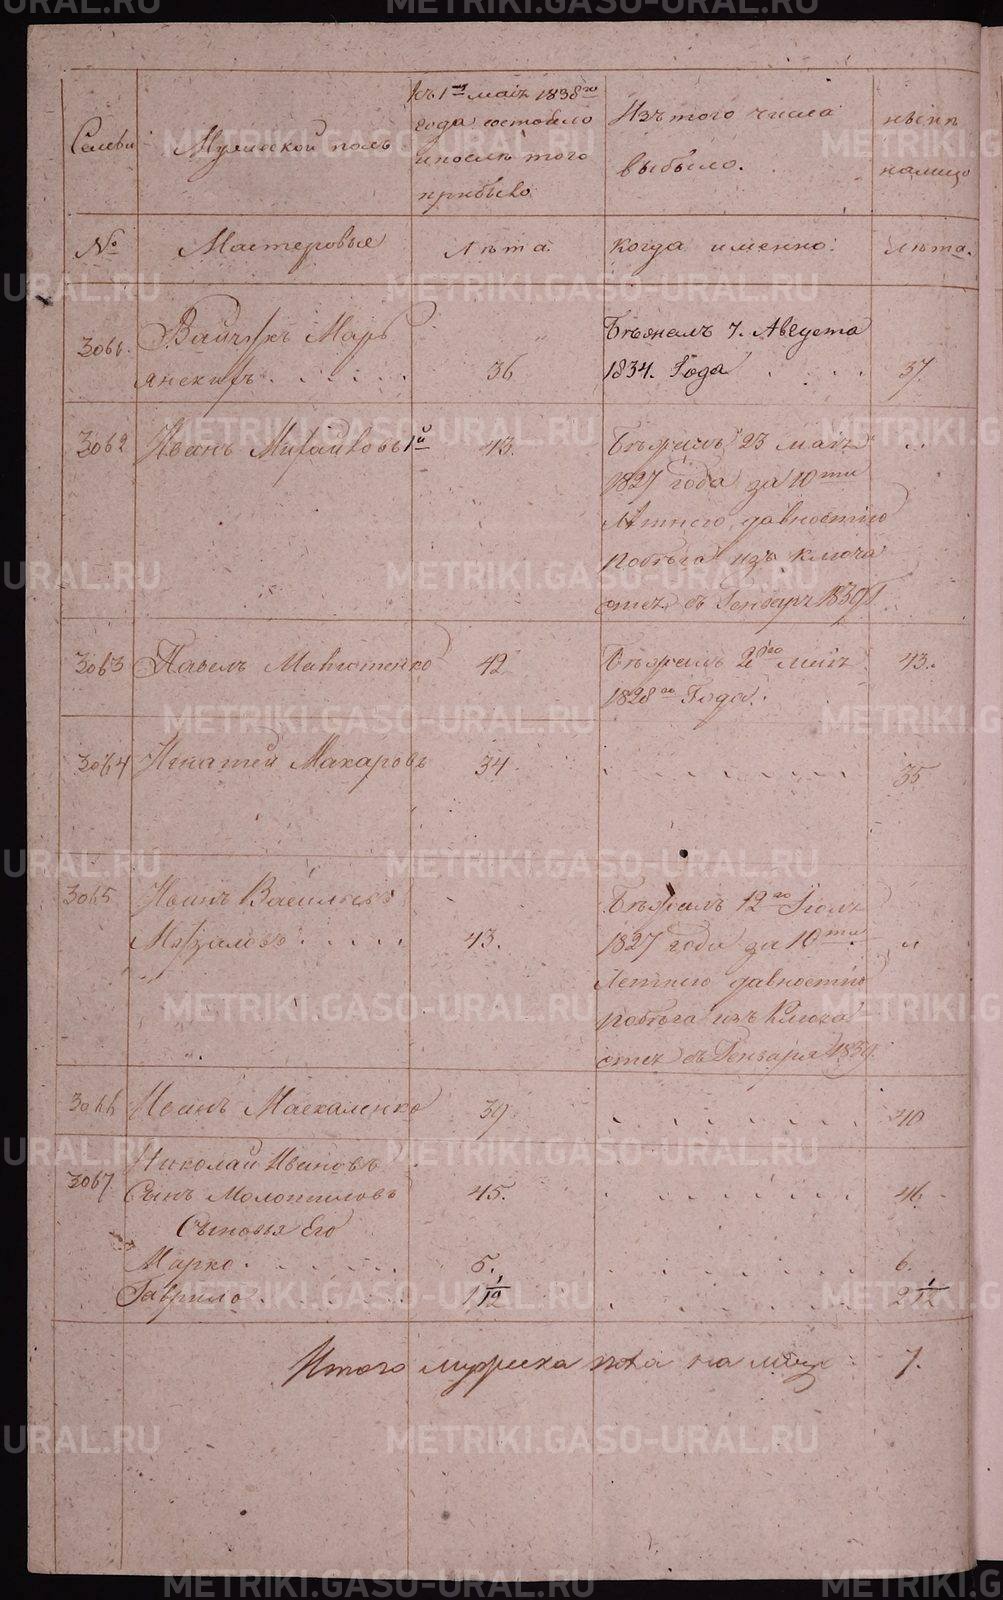 Мужеской полъ
къ 1му маiя 1838го
года состояло
и после того
прибыло
Изъ того числа
выбыло.
ныне
налицо
№ Мастеровые Лета Когда именно: Лета.
3061. Войчехъ Марь
янскихъ . . . . . 36
Бежалъ 7. Августа
1834. Года . . . . 37.
3062 Иванъ Михайловъ 1й 43.
Бежалъ 23 маiя
1827 года за 10ти
летнею давностiю
побега изъ
въ Генваре 1839
3063 Павелъ 42
Бежалъ маiя 43.
1828го Года.
3064 Игнатей Макаровъ 34 . . . . . . . 35
3065 Иванъ Васильевъ
43.
Бежалъ 12го Iюля
1827 года за 10ти
летнею давностiю
побега изъ
въ Генваре 1839.
3066 Иванъ Маскаленко 39 . . . . . . . 40
3067 Николай Ивановъ
Сынъ Молотиловъ 45. . . . . . . . 46.
Сыновья Его
Марко . . . . . . 5. . . . . . . . 6.
Гаврило . . . . . 1 1/12 . . . . . . . 2 1/12
Итого мужеска пола на лицо 7.
METRIKI.GASO-URAL.RU